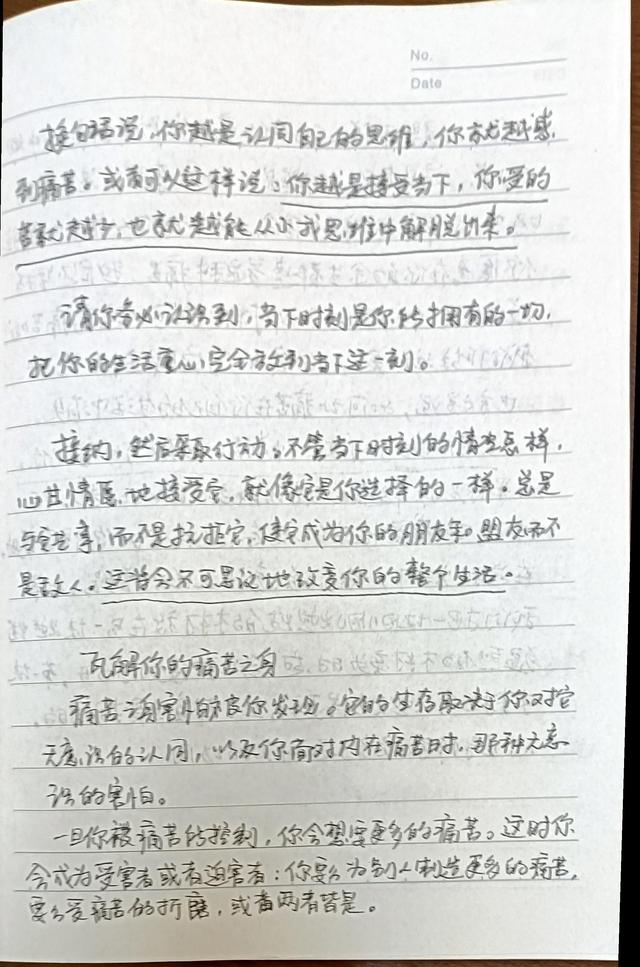 No.
Date
换句话说,你越是认同自己的思维,你就越感
到痛苦。或者可以这样说:你越是接受当下,你受的
苦就越少,也就越能从小我思维中解脱出来。
请你务必认识到,当下时刻是你所拥有的一切,
把你的生活重心完全放到当下这一刻。
接纳,然后采取行动。不管当下时刻的情况怎样,
心甘情愿地接受它,就像它是你选择的一样。总是
与它共事,而不是抗拒它,使它成为你的朋友和盟友而不
是敌人。这将会不可思议地改变你的整个生活。
瓦解你的痛苦之身
痛苦之身害怕被你发现。它的生存取决于你对它
无意识的认同,以及你面对内在痛苦时,那种无意
识的害怕。
一旦你被痛苦所控制,你会想要更多的痛苦。这时你
会成为受害者或者迫害者:你要么为别人制造更多的痛苦,
要么受痛苦的折磨,或者两者皆是。